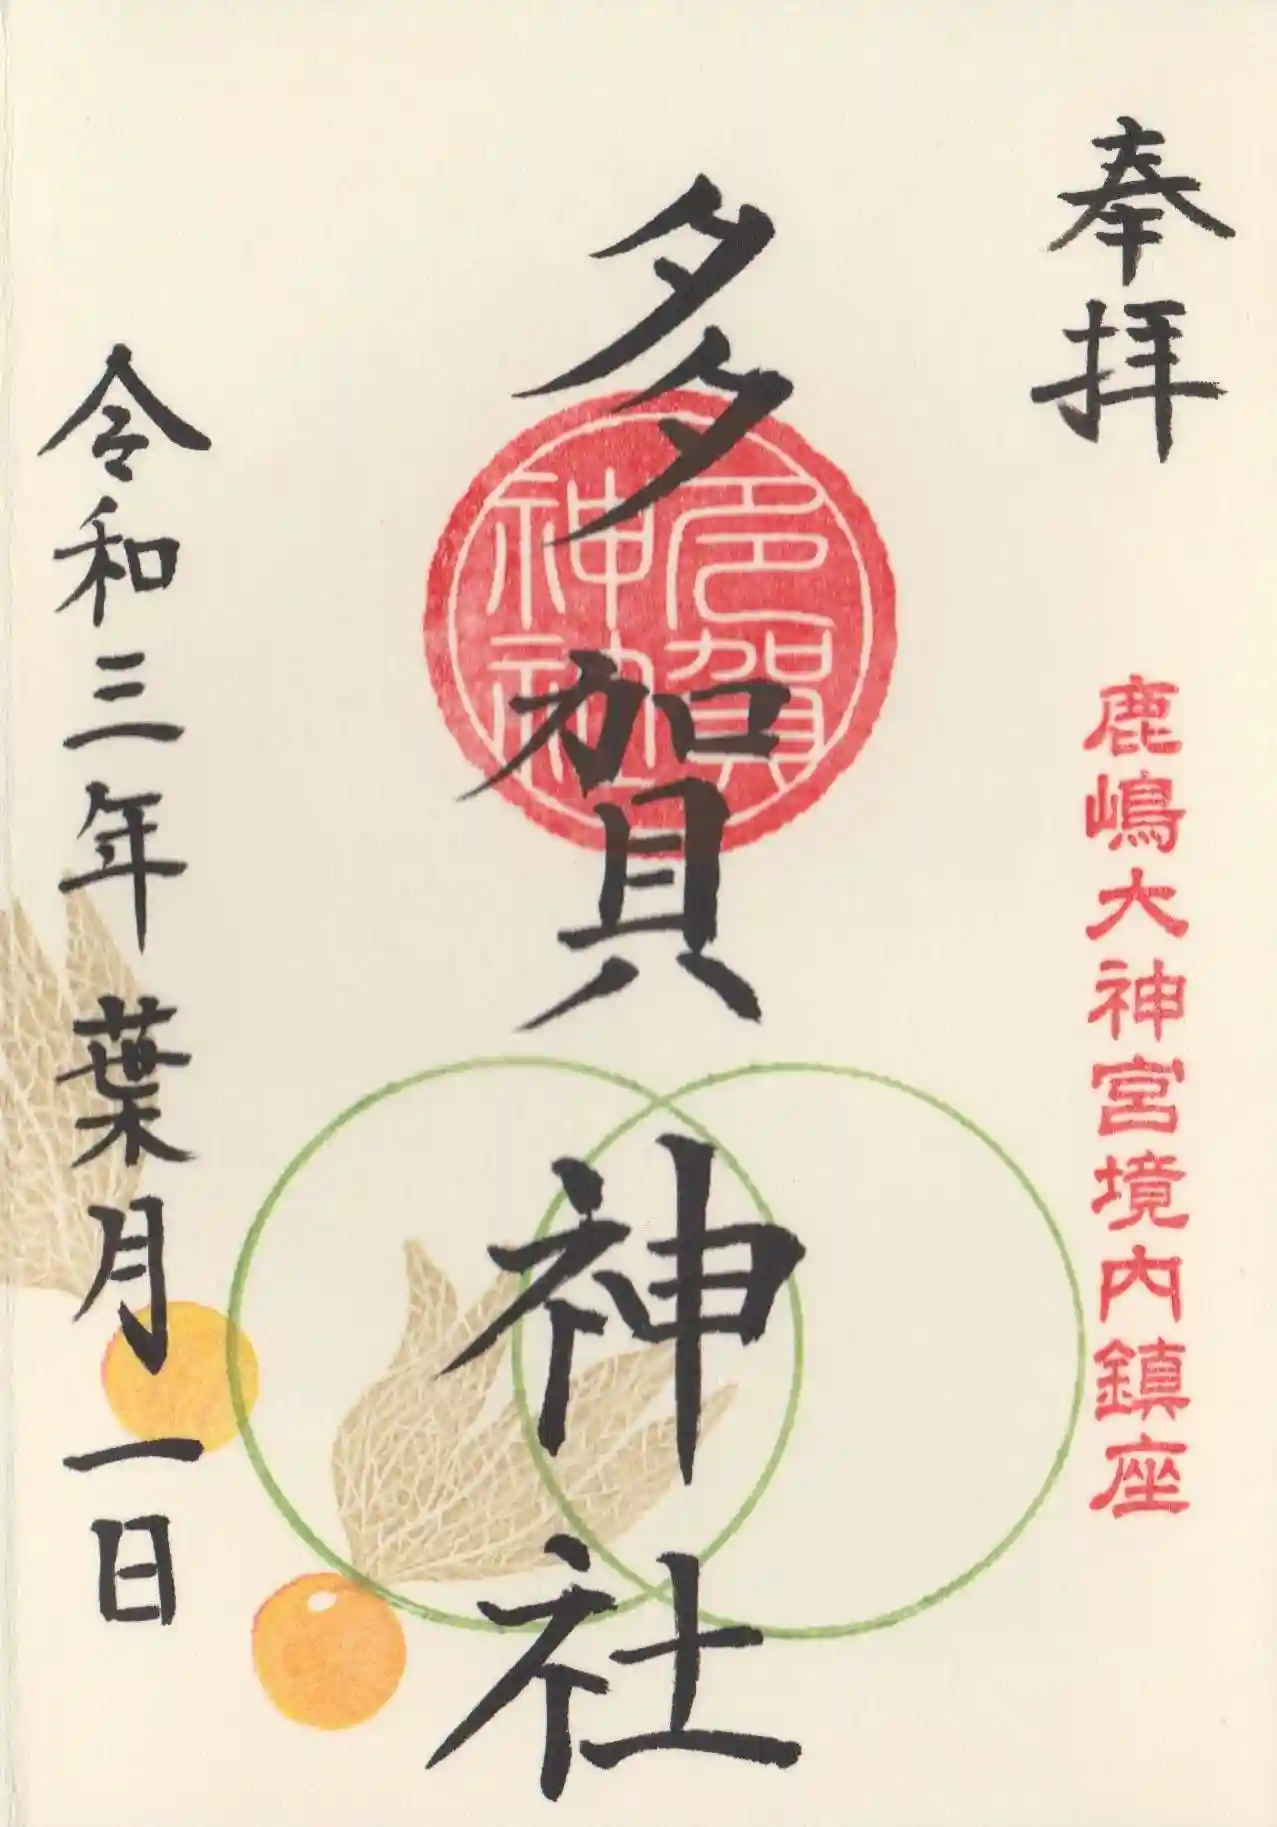 奉拝
鹿嶋大神宮境内鎮座
多賀神社
多賀
神社
令和三年葉月一日